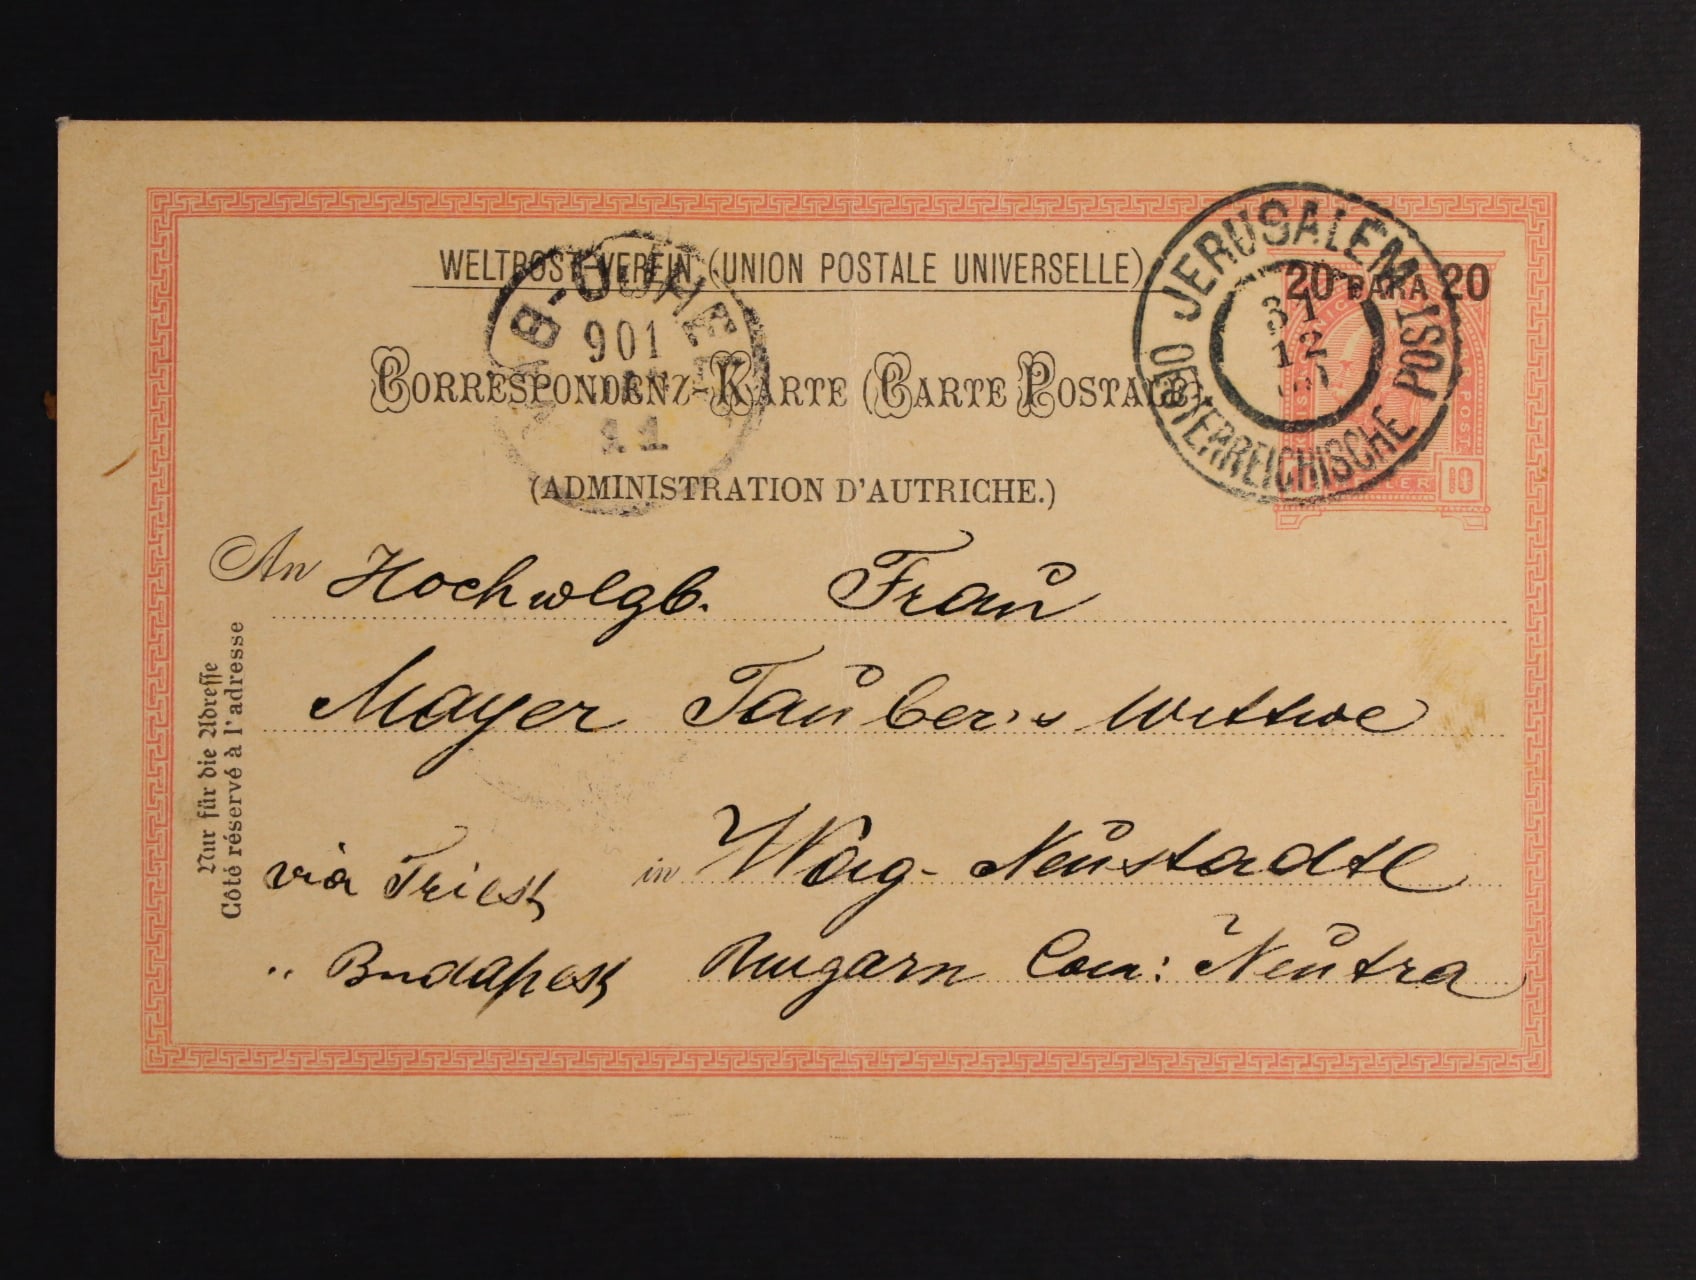 WELTPOST-VEREIN (UNION POSTALE UNIVERSELLE)
20 PARA 20
JERUSALEM
OESTERREICHISCHE POST
31
12
CORRESPONDENZ-KARTE (CARTE POSTALE)
901
11
(ADMINISTRATION D'AUTRICHE.)
10
POST
An Hochwlgb. Frau
Mayer Tauber's Wittwe
via Triest in Waag-Neustadtl
" Budapest Ungarn Com: Neutra
Nur für die Adresse
Côté réservé à l'adresse